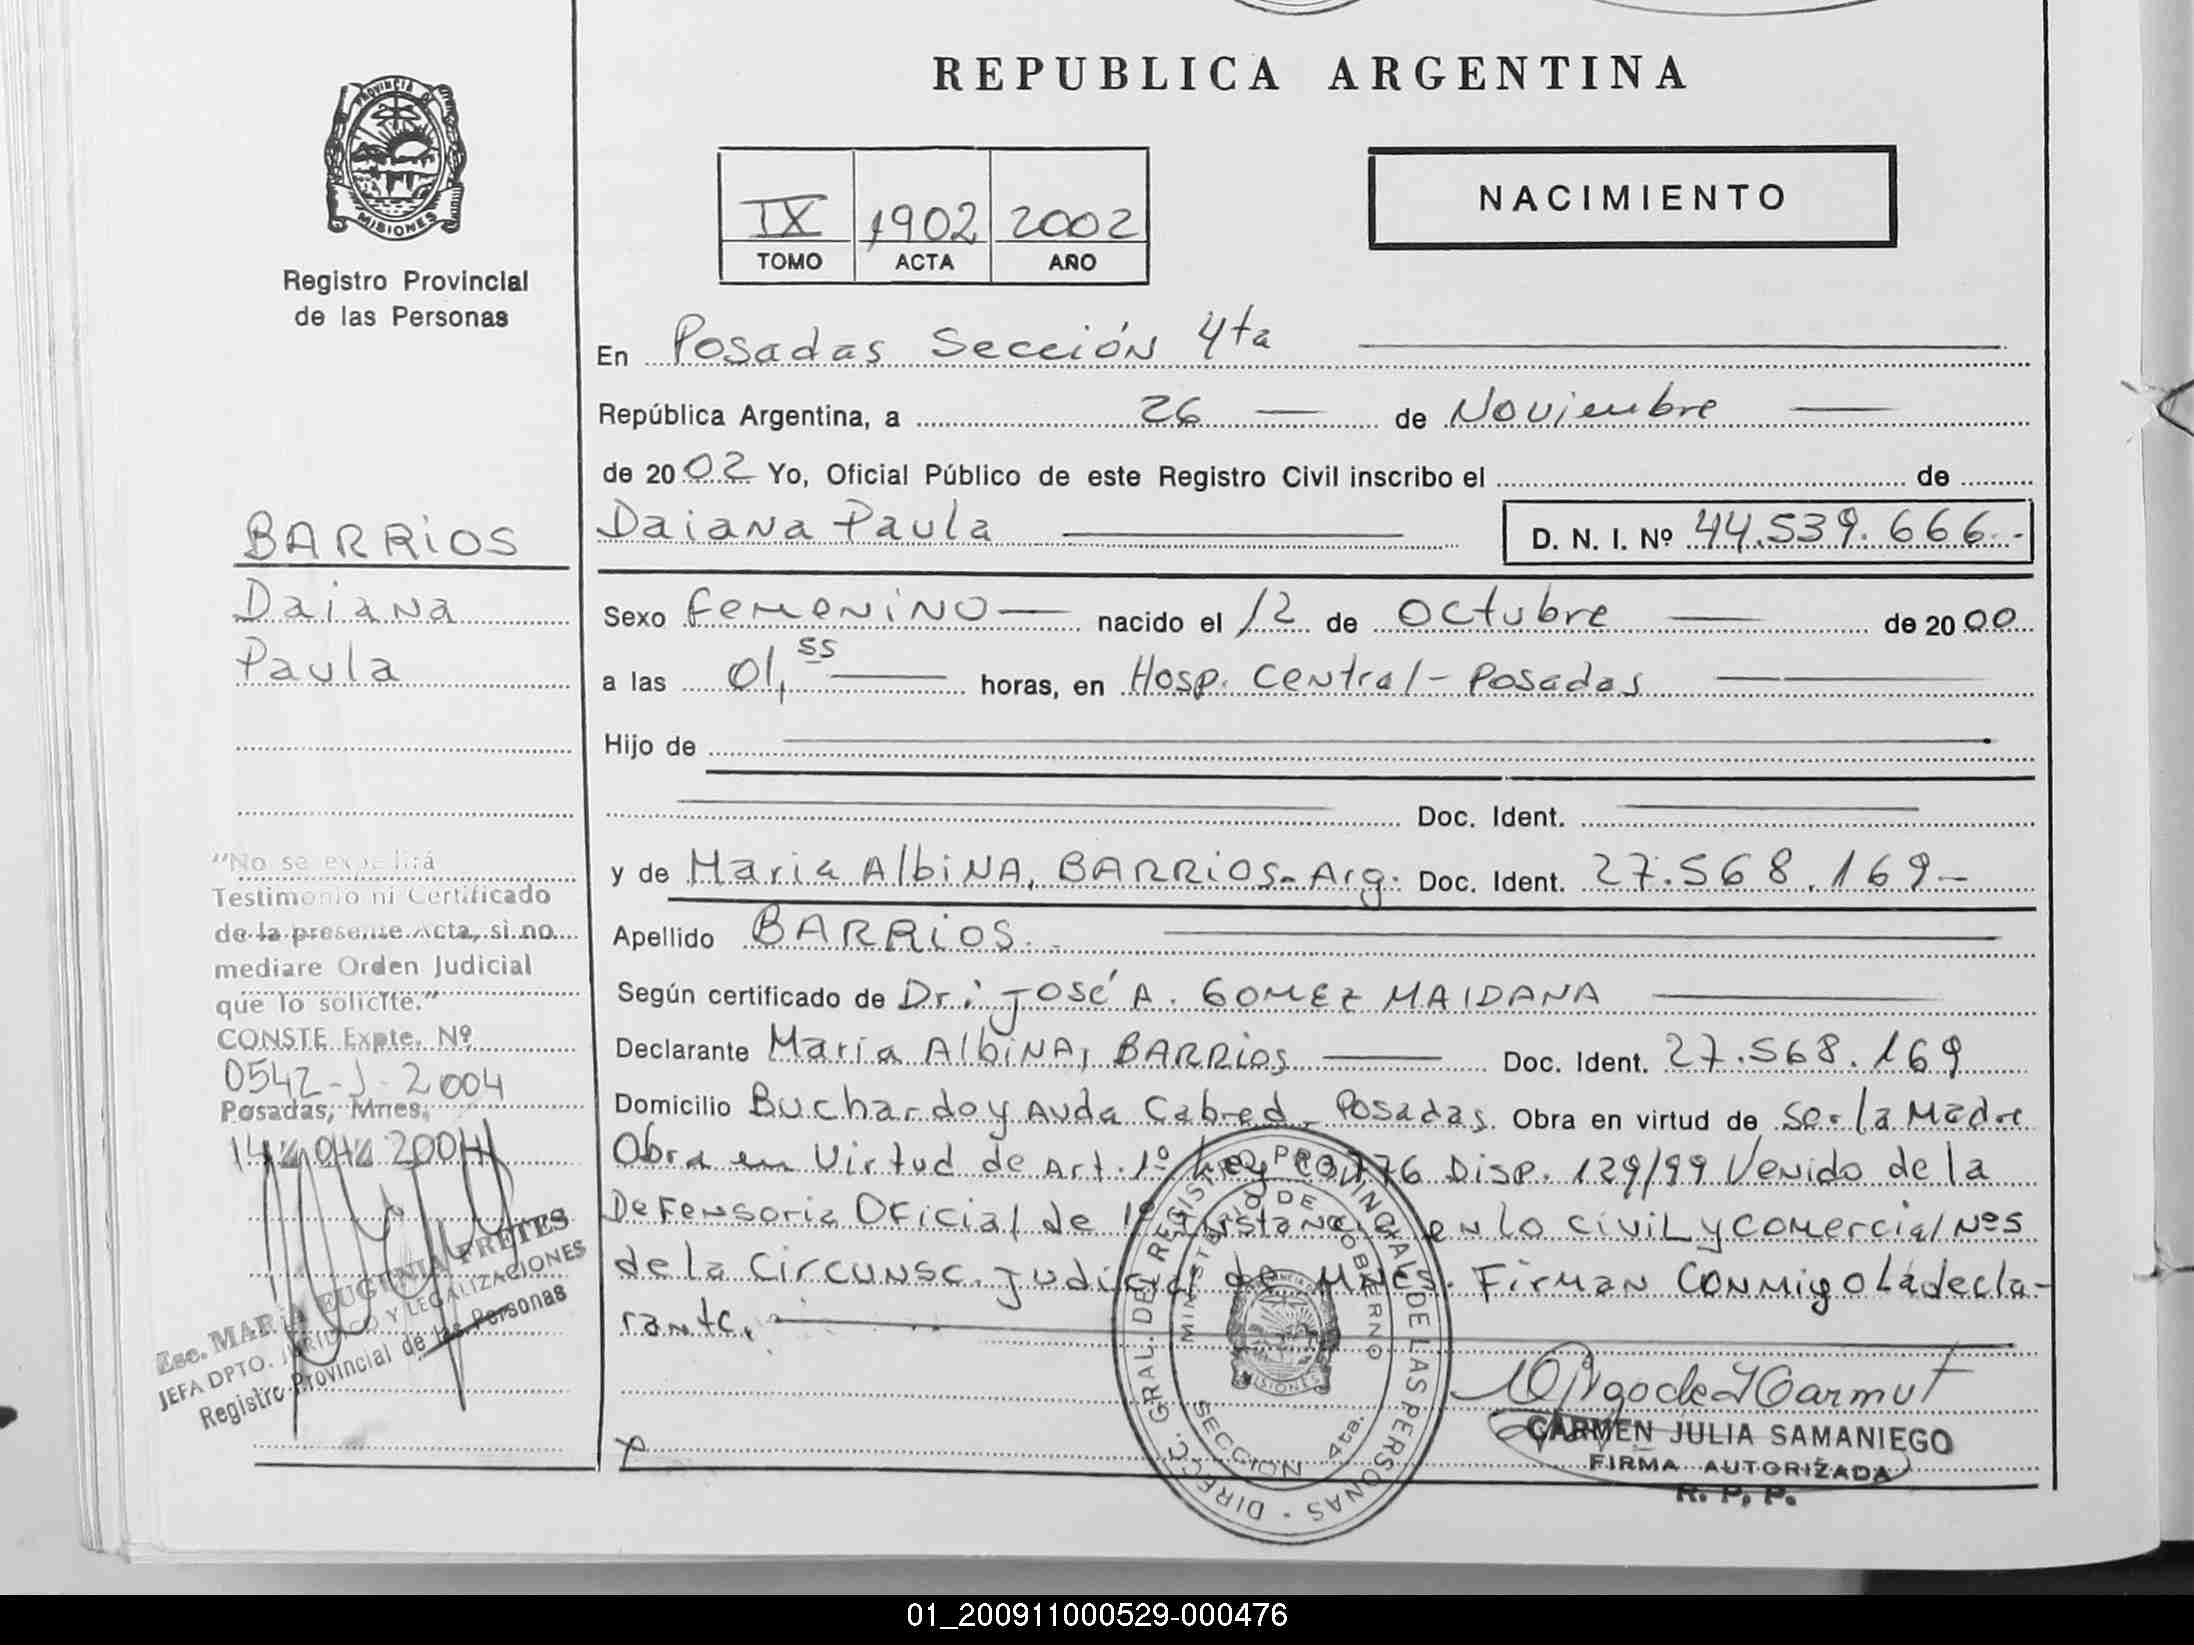 REPUBLICA ARGENTINA
PROVINCIA DE MISIONES
Registro Provincial
de las Personas
IX 1902 2002
TOMO ACTA AÑO
NACIMIENTO
En Posadas Sección 4ta
República Argentina, a 26 de Noviembre
de 2002 Yo, Oficial Público de este Registro Civil inscribo el de
BARRIOS
Daiana
Paula
Daiana Paula D. N. I. Nº 44.539.666.-
Sexo Femenino nacido el 12 de Octubre de 2000
a las 01,55 horas, en Hosp. Central - Posadas
Hijo de
Doc. Ident.
y de Maria Albina, BARRIOS.- Arg. Doc. Ident. 27.568.169.-
Apellido BARRIOS.-
Según certificado de Dr: José A. GOMEZ MAIDANA
Declarante Maria Albina, BARRIOS Doc. Ident. 27.568.169
Domicilio Buchardo y Avda Cabred - Posadas. Obra en virtud de Ser la Madre
Obra en Virtud de Art. 1º Ley Disp. 129/99 Venido de la
Defensoria Oficial de 1º Instancia en lo civil y comercial Nº5
de la Circunsc. Judicial de Mnes. Firman conmigo la decla-
rante.
"No se expedirá
Testimonio ni Certificado
de la presente Acta, si no
mediare Orden Judicial
que lo solicite."
CONSTE Expte. Nº
0542-J-2004
Posadas, Mnes,
14 04 2004
Esc. MARIA EUGENIA FRETES
JEFA DPTO. JURIDICO Y LEGALIZACIONES
Registro Provincial de las Personas
DIRECC. GRAL. DEL REGISTRO PROVINCIAL DE LAS PERSONAS
MINISTERIO DE GOBIERNO
PROVINCIA DE MISIONES
SECCION 4ta.
CARMEN JULIA SAMANIEGO
FIRMA AUTORIZADA
R. P. P.
01_200911000529-000476